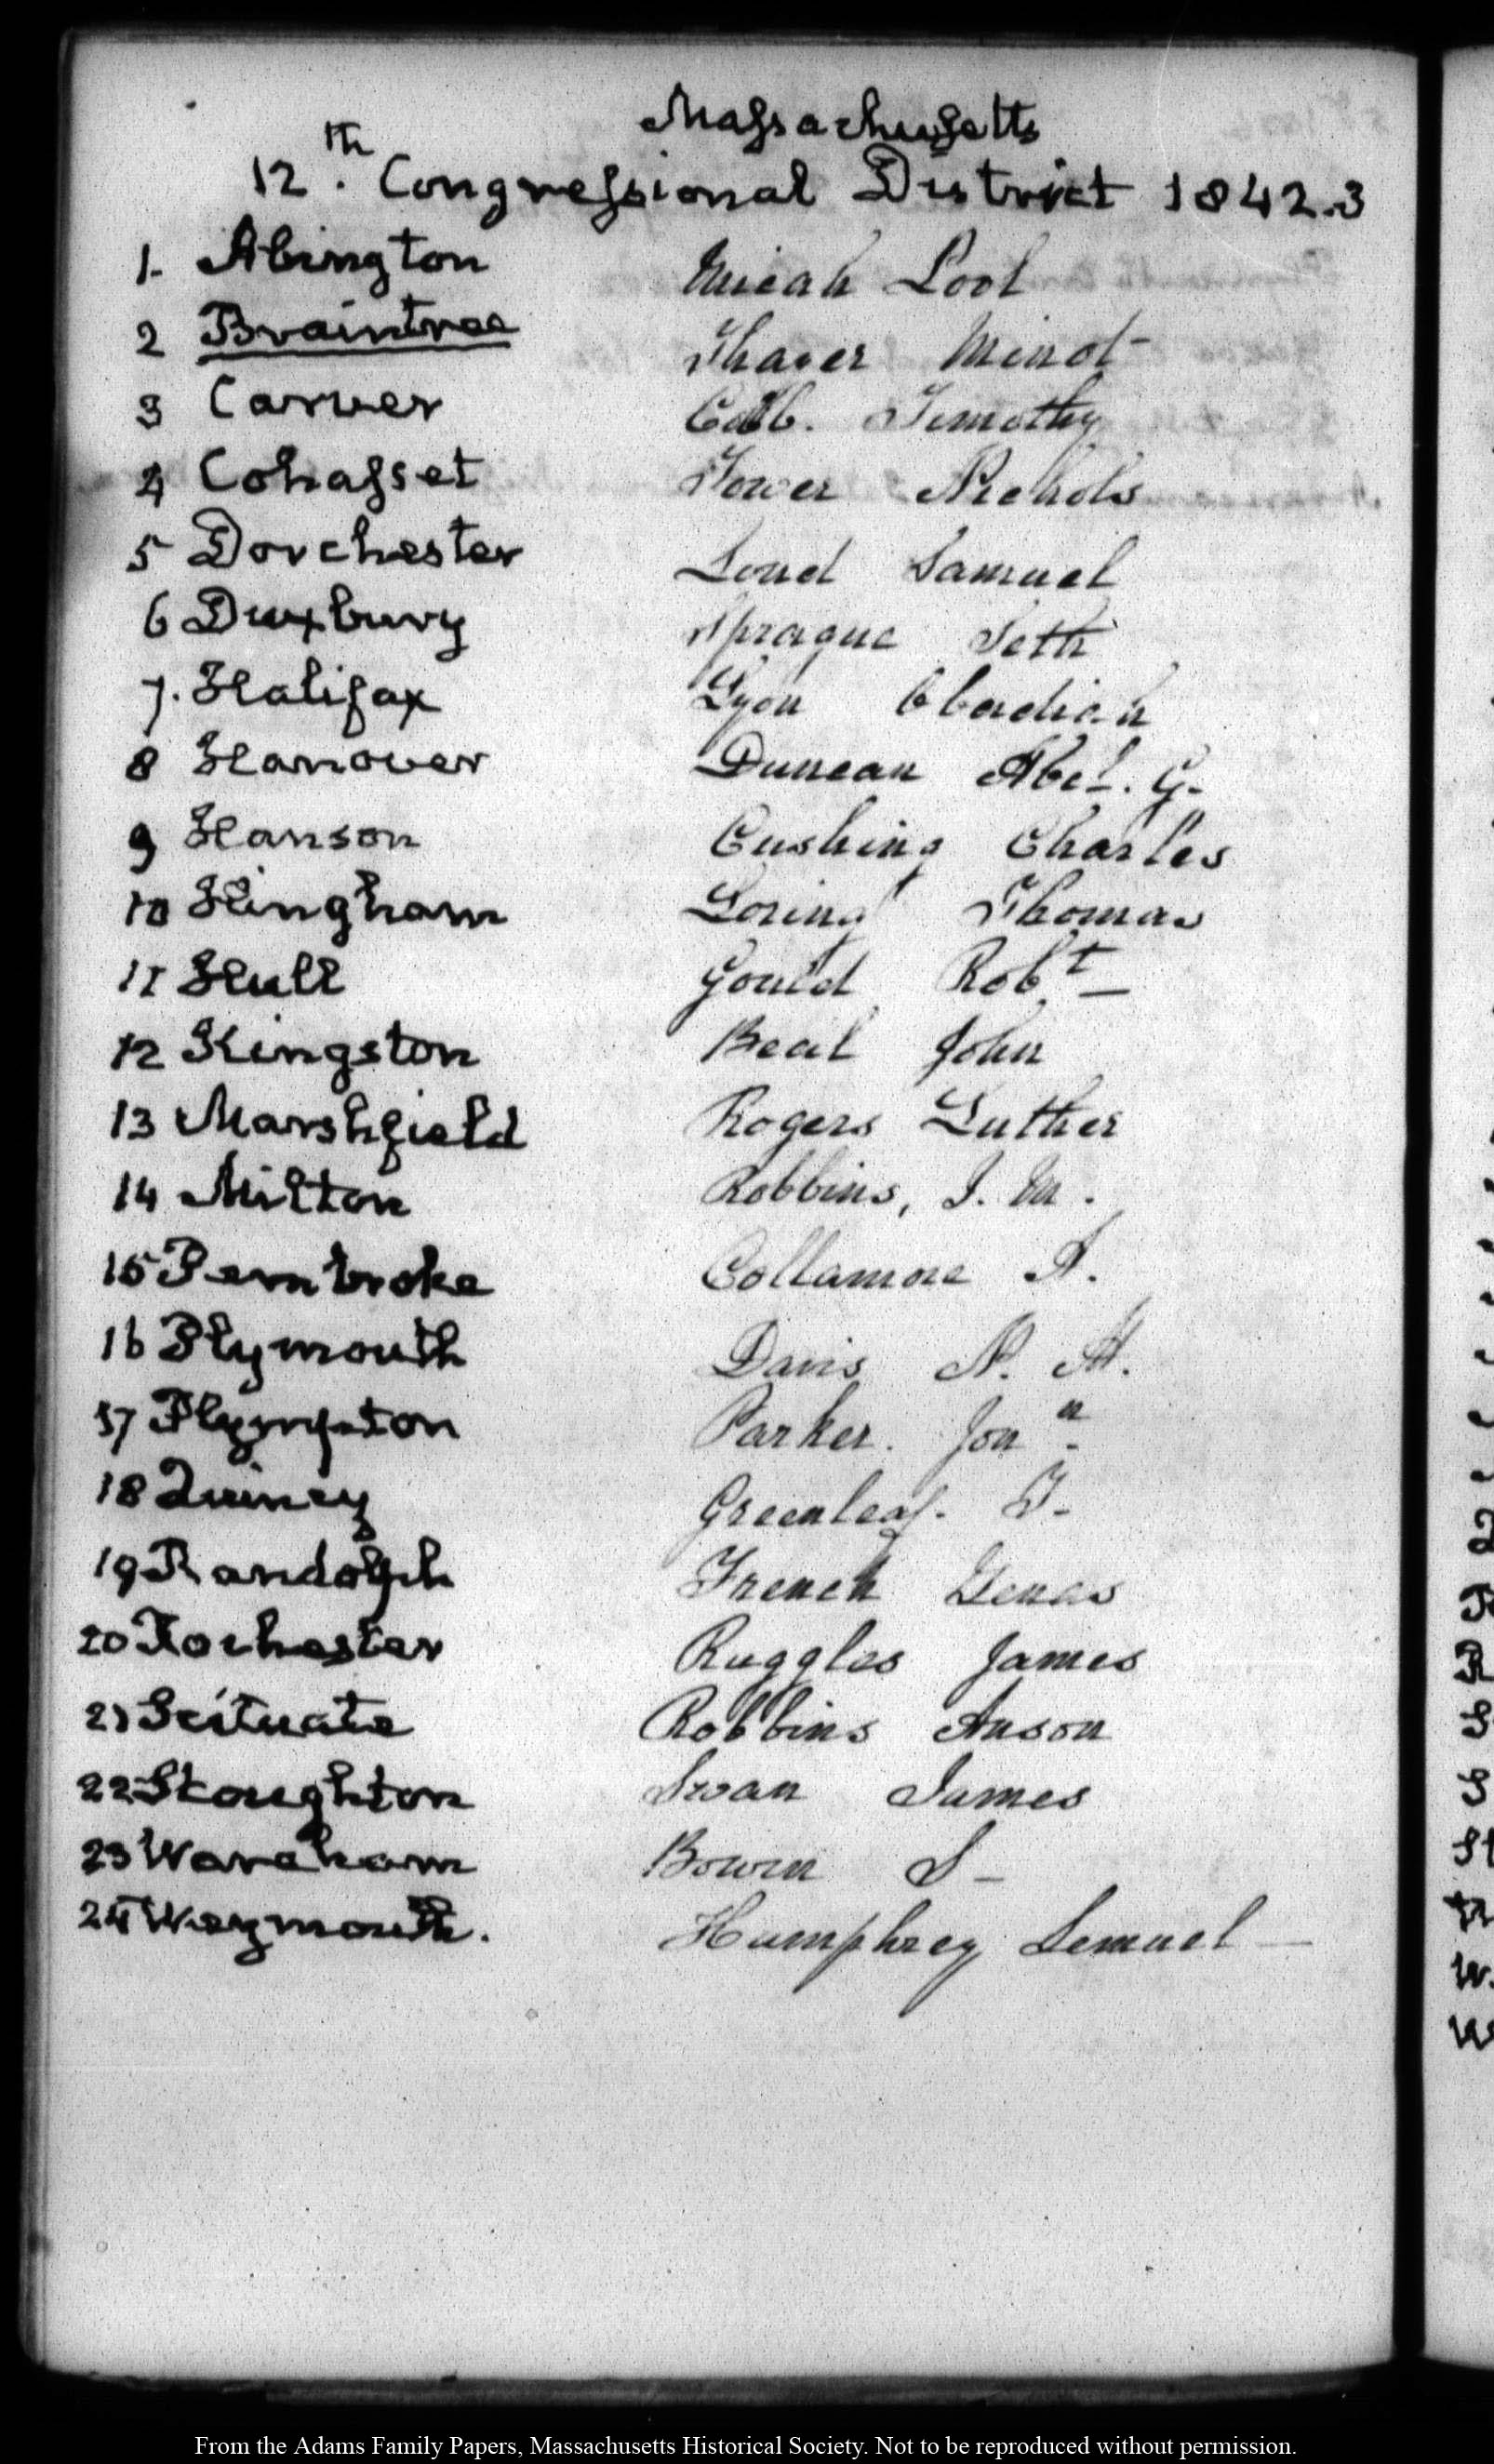 Massachusetts
12th. Congressional District 1842.3
1. Abington Micah Pool
2 Braintree Thayer Minot
3 Carver Cobb. Timothy
4 Cohasset Tower Nichols
5 Dorchester Loud Samuel
6 Duxbury Sprague Seth
7. Halifax Lyon Obadiah
8 Hanover Duncan Abel. G.
9 Hanson Cushing Charles
10 Hingham Loring Thomas
11 Hull Gould Robt
12 Kingston Beal John
13 Marshfield Rogers Luther
14 Milton Robbins, J. M.
15 Pembroke Collamore A.
16 Plymouth Davis N. M.
17 Plympton Parker. Jona.
18 Quincy Greenleaf. T.
19 Randolph French Zenas
20 Rochester Ruggles James
21 Scituate Robbins Anson
22 Stoughton Swan James
23 Wareham Bowen S
24 Weymouth. Humphrey Lemuel
From the Adams Family Papers, Massachusetts Historical Society. Not to be reproduced without permission.